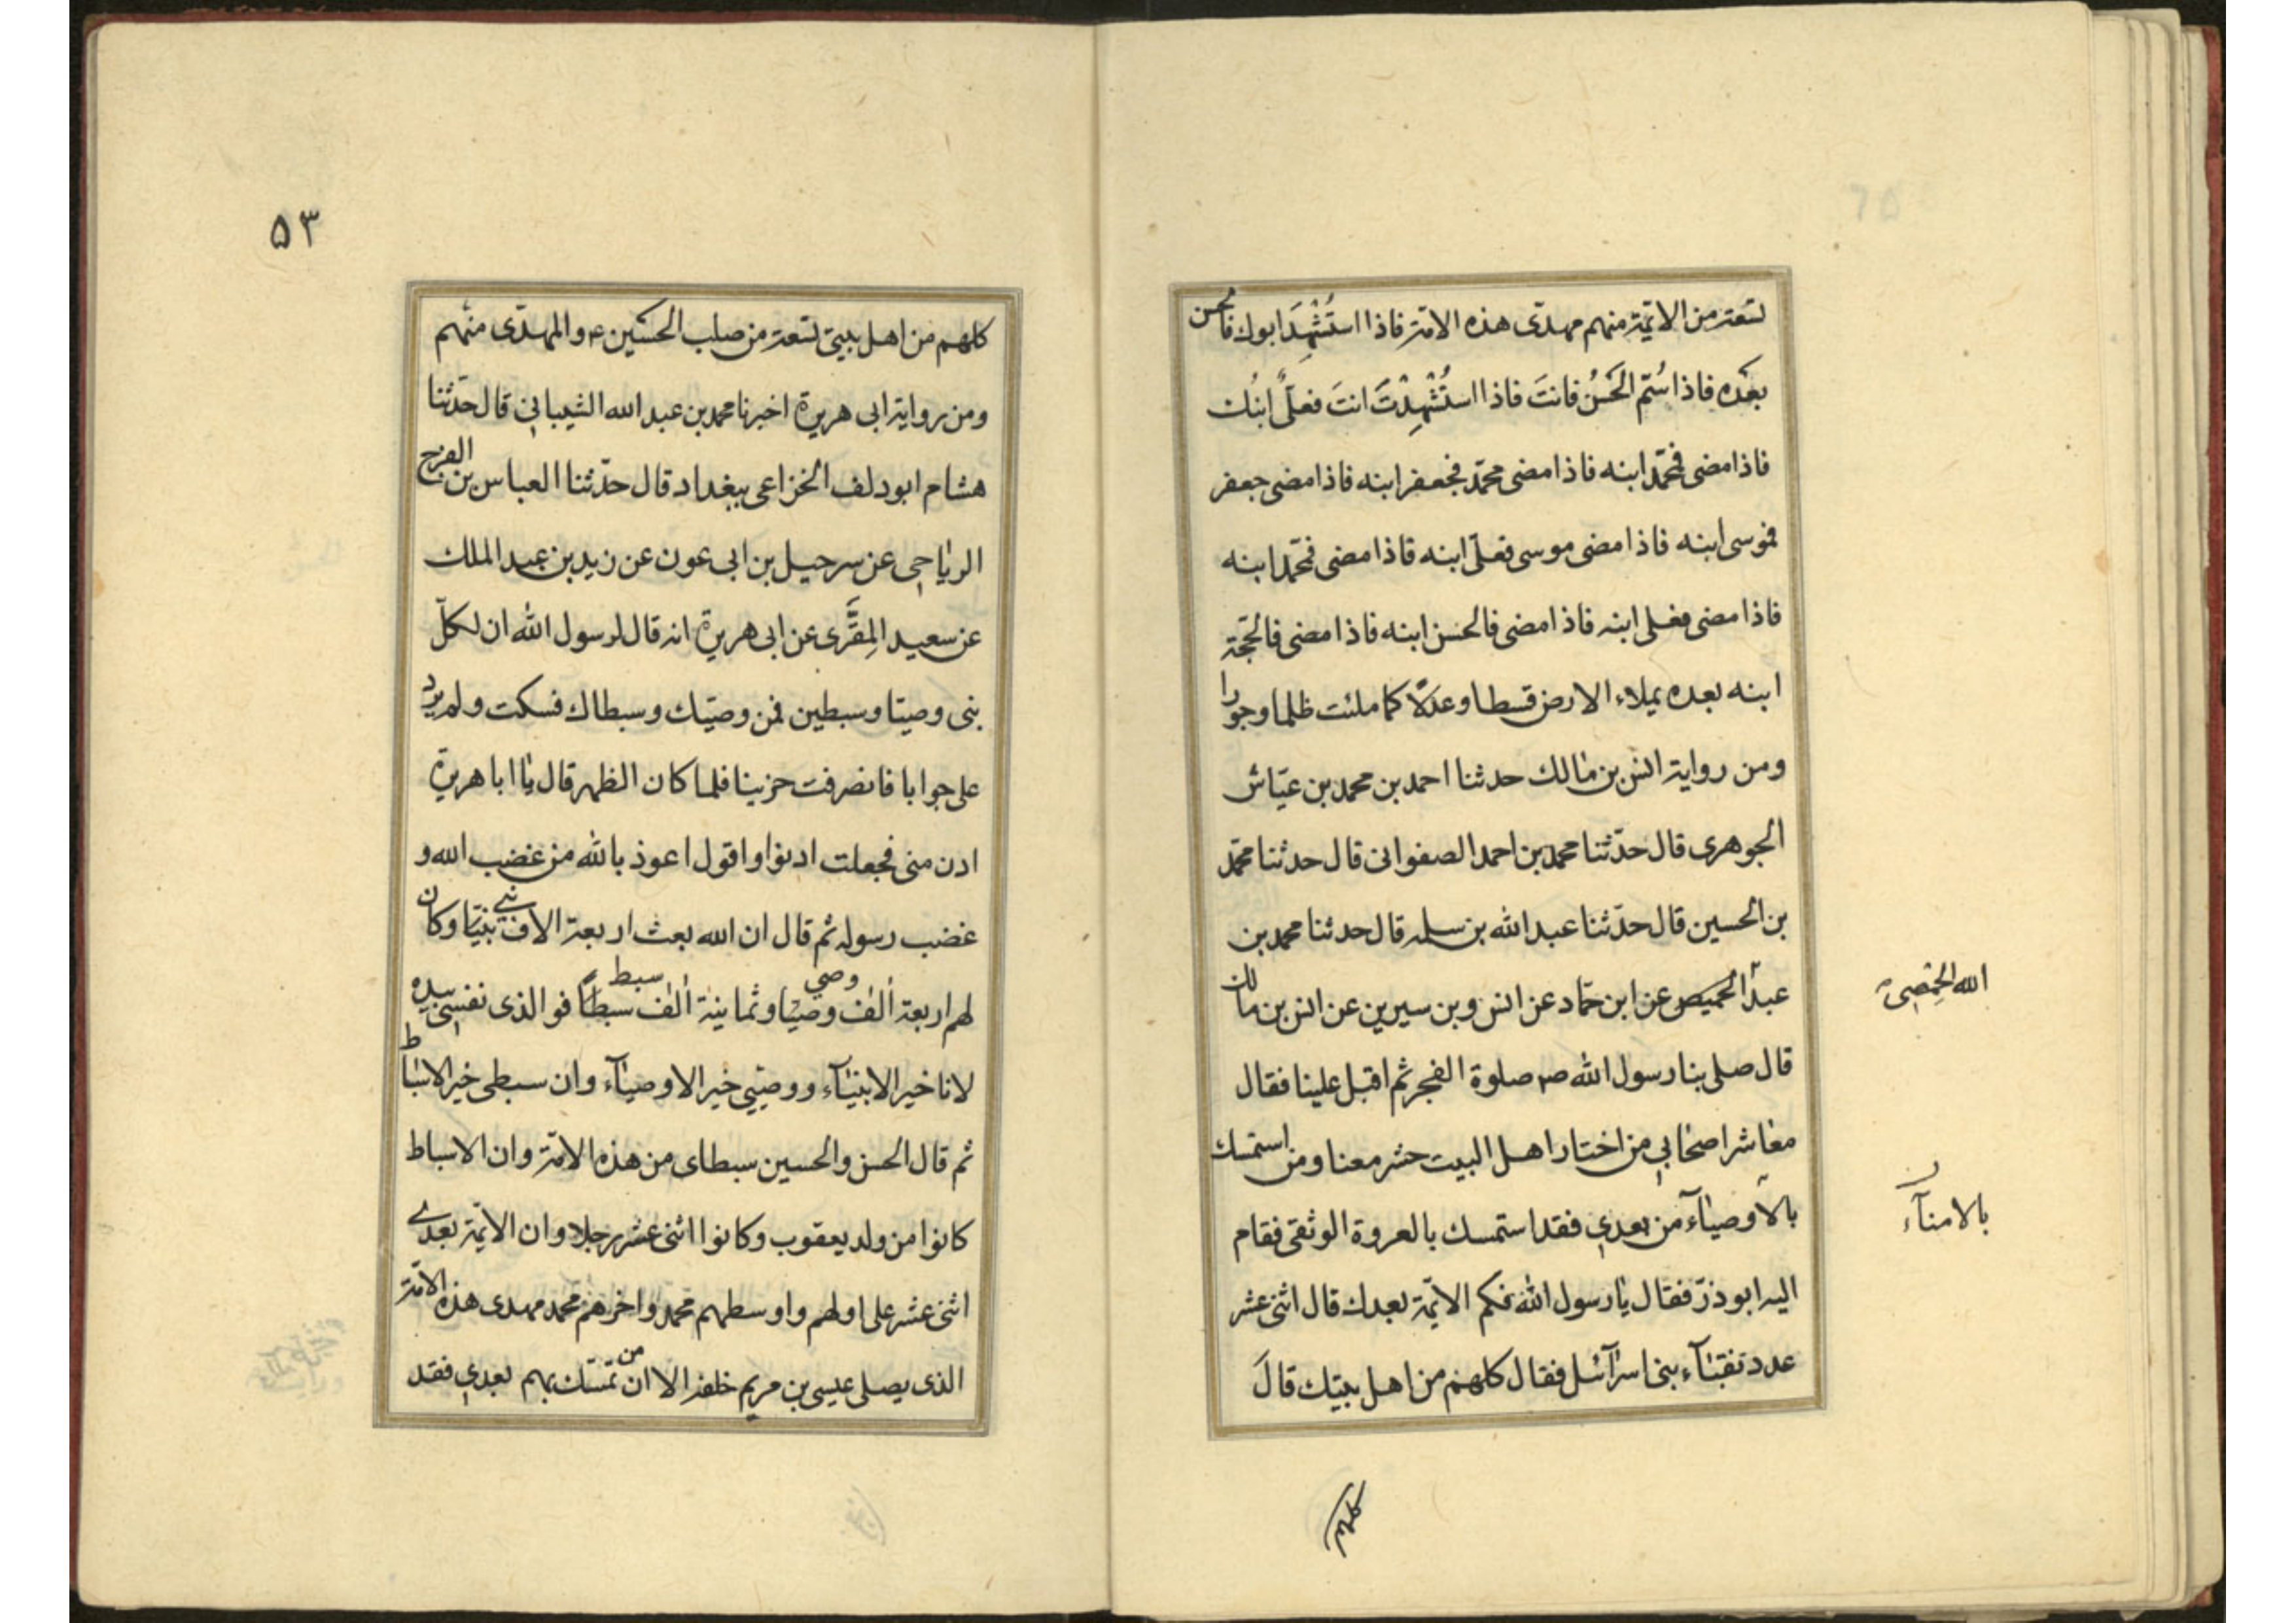 تسعة من الائمّة منهم مهدىّ هذه الامّة فاذا استُشْهِدَ ابوك فالحسن
بعَده فاذا سُمّ الحَسنُ فانتَ فاذا استُشْهِدْتَ انتَ فعلىٌّ ابنُك
فاذا مضى فمحمّد ابنه فاذا مضى محمّد فجعفر ابنه فاذا مضى جعفر
فموسى ابنه فاذا مضى موسى فعلىّ ابنه فاذا مضى فمحمّد ابنه
فاذا مضى فعلى ابنه فاذا مضى فالحسن ابنه فاذا مضى فالحجّة
ابنه بعده يملاء الارض قسطا وعدلًا كما ملئت ظلما وجورا
ومن رواية انس بن مالك حدثنا احمد بن محمد بن عيّاش
الجوهرى قال حدّثنا محمد بن احمد الصفوانى قال حدثنا محمّد
بن الحسين قال حدّثنا عبد الله بن سلمه قال حدثنا محمد بن
عبد الحميصى عن ابن حمّاد عن انس وبن سيرين عن انس بن مالك
الله الحِمْصِى
قال صلى بنا رسول الله ص صلوة الفجر ثم اقبل علينا فقال
معاشر اصحابي من اختار اهل البيت حشر معنا ومن استمسك
بالاوصيآء من بعدي فقد استمسك بالعروة الوثقى فقام
بالامنآء
اليه ابو ذرّ فقال يا رسول الله فكم الائمّة بعدك قال اثنى عشر
عدد نقبآء بنى اسرآئيل فقال كلهم من اهل بيتك قالَ
٥٣
كلهم من اهل بيتى تسعة من صلب الحسين ع والمهدّى منهم
ومن رواية ابى هريرة اخبرنا محمد بن عبد الله الشيبانى قال حدّثنا
هشام ابو دلف الخزاعى ببغداد قال حدّثنا العباس بن الفرج
الرياحى عن سرحيل بن ابى عون عن زيد بن عبد الملك
عن سعيد المِقَّرى عن ابى هريرة انه قال لرسول الله ان لكلّ
نبى وصيّا وسبطين فمن وصيّك وسبطاك فسكت ولم يردّ
على جوابا فانصرفت حزينا فلما كان الظهر قال يا ابا هريرة
ادن منى فجعلت ادنوا واقول اعوذ بالله من غضب الله و
غضب رسوله ثم قال ان الله بعث اربعة الاف نبيّا نبي وكان
لهم اربعة ألف وصيّا وصي وثمانية ألف سبطاً سبط فو الذى نفسي بيده
لانا خير الانبيآء ووصيّي خير الاوصيآء وان سبطى خير الاسباط
ثم قال الحسن والحسين سبطاى من هذه الامّة وان الاسباط
كانوا من ولد يعقوب وكانوا اثنى عشر رجلا وان الائمّة بعدي
اثنى عشر على اولهم واوسطهم محمد واخرهم محمد مهدى هذه الامّة
الذى يصلى عيسى بن مريم خلفه الا ان من تمسّك بهم بعدي فقد